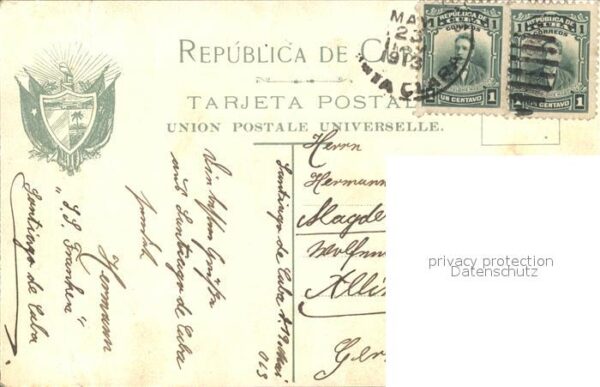 REPÚBLICA DE C
TARJETA POSTA
UNION POSTALE UNIVERSELLE.
MAY
23
1913
TA CLARA
REPUBLICA DE CUBA
CORREOS
1 UN CENTAVO 1
REPUBLICA DE CUBA
CORREOS
1 UN CENTAVO 1
Herrn
Hermann
Magde
Alli
Ger
Santiago de Cuba
Grüße
aus Santiago de Cuba
sendet
Hermann
"S.S. Franken"
Santiago de Cuba
privacy protection
Datenschutz